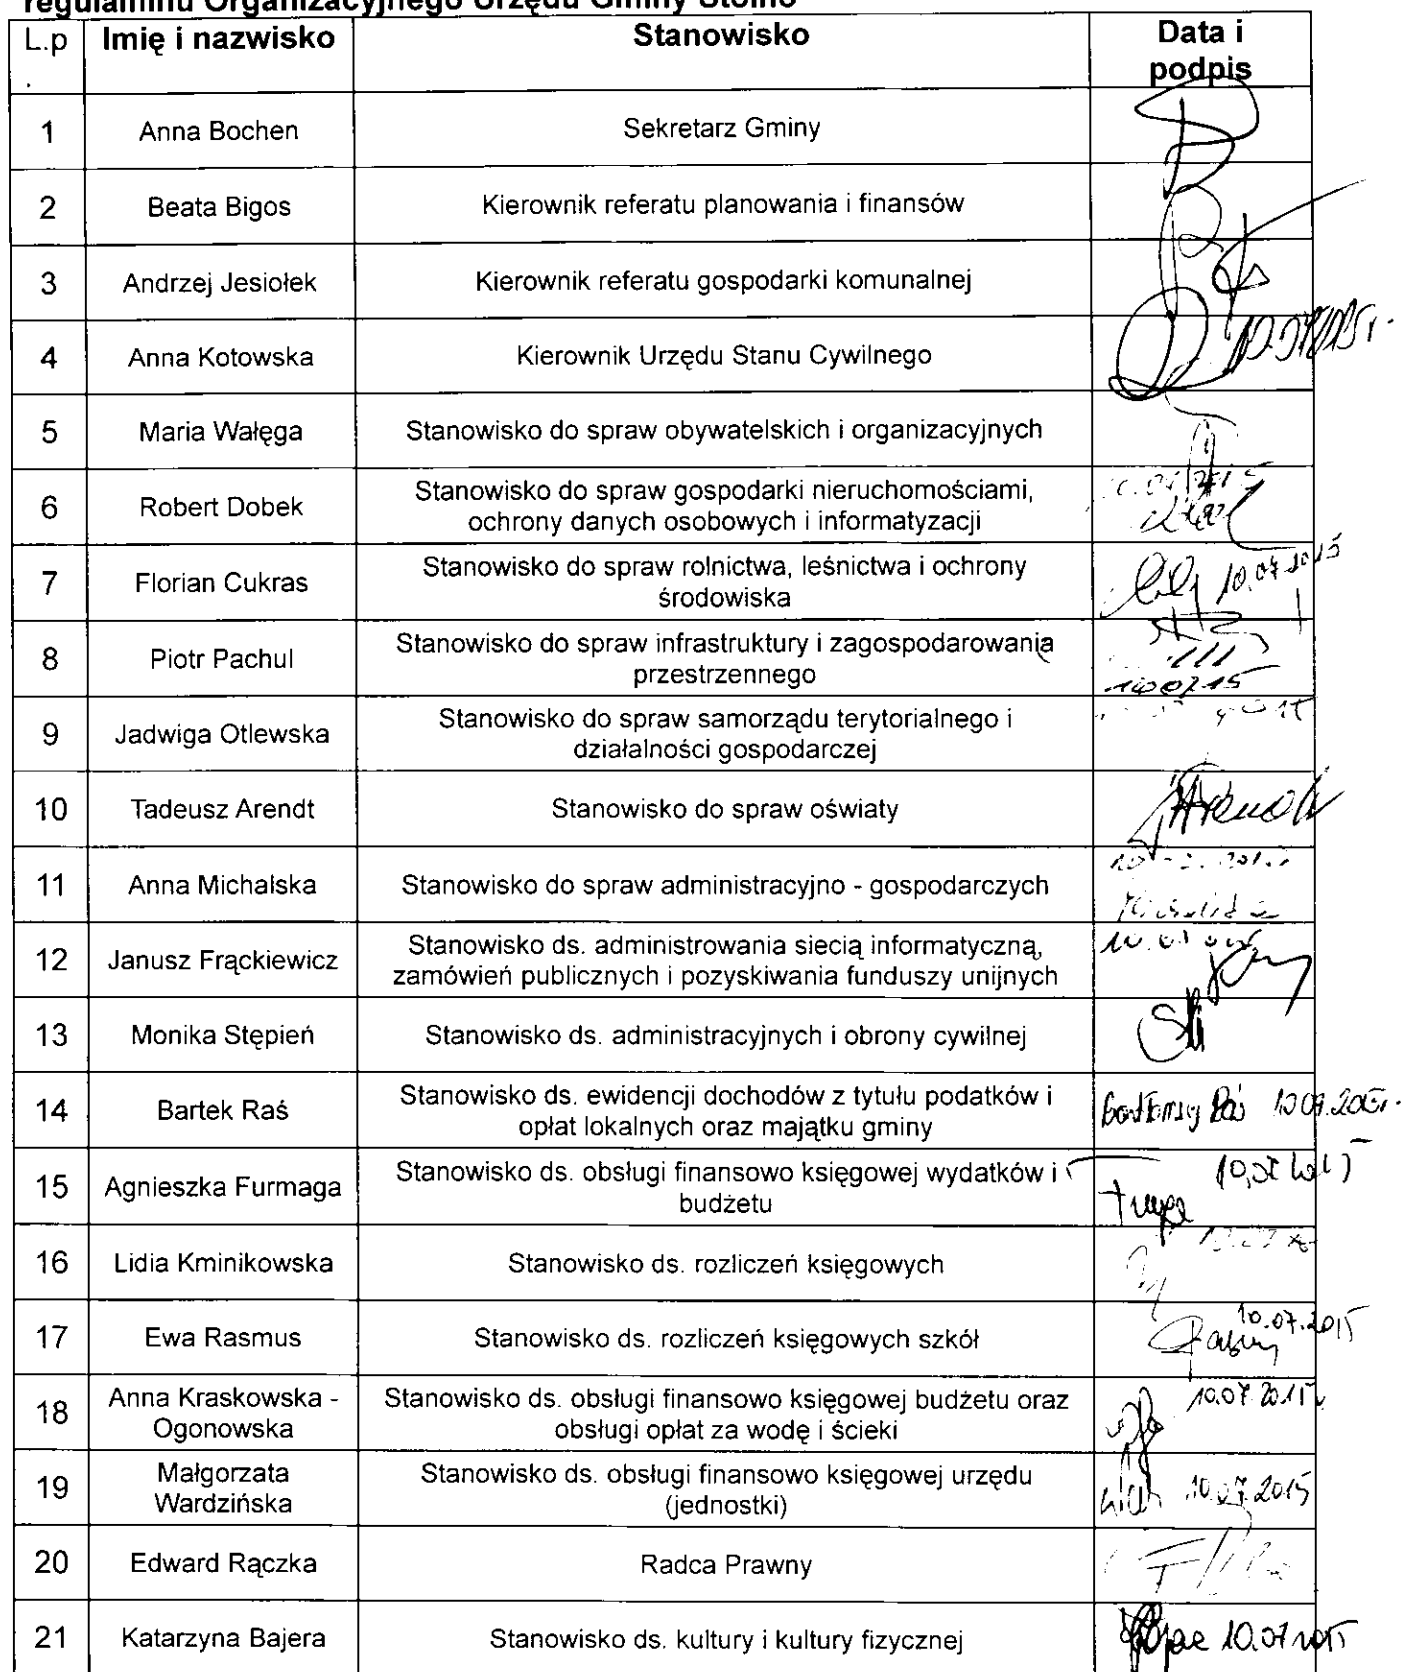 regulaminu Organizacyjnego Urzędu Gminy Stolno
L.p. Imię i nazwisko Stanowisko Data i
podpis
1 Anna Bochen Sekretarz Gminy
2 Beata Bigos Kierownik referatu planowania i finansów
3 Andrzej Jesiołek Kierownik referatu gospodarki komunalnej
4 Anna Kotowska Kierownik Urzędu Stanu Cywilnego
5 Maria Wałęga Stanowisko do spraw obywatelskich i organizacyjnych
6 Robert Dobek Stanowisko do spraw gospodarki nieruchomościami,
ochrony danych osobowych i informatyzacji
7 Florian Cukras Stanowisko do spraw rolnictwa, leśnictwa i ochrony
środowiska
10.07.2015
8 Piotr Pachul Stanowisko do spraw infrastruktury i zagospodarowania
przestrzennego
9 Jadwiga Otlewska Stanowisko do spraw samorządu terytorialnego i
działalności gospodarczej
10 Tadeusz Arendt Stanowisko do spraw oświaty
11 Anna Michalska Stanowisko do spraw administracyjno - gospodarczych
12 Janusz Frąckiewicz Stanowisko ds. administrowania siecią informatyczną,
zamówień publicznych i pozyskiwania funduszy unijnych
13 Monika Stępień Stanowisko ds. administracyjnych i obrony cywilnej
14 Bartek Raś Stanowisko ds. ewidencji dochodów z tytułu podatków i
opłat lokalnych oraz majątku gminy
15 Agnieszka Furmaga Stanowisko ds. obsługi finansowo księgowej wydatków i
budżetu
16 Lidia Kminikowska Stanowisko ds. rozliczeń księgowych
17 Ewa Rasmus Stanowisko ds. rozliczeń księgowych szkół 10.07.2015
18 Anna Kraskowska -
Ogonowska
Stanowisko ds. obsługi finansowo księgowej budżetu oraz
obsługi opłat za wodę i ścieki
10.07.2015
19 Małgorzata
Wardzińska
Stanowisko ds. obsługi finansowo księgowej urzędu
(jednostki)
10.07.2015
20 Edward Rączka Radca Prawny
21 Katarzyna Bajera Stanowisko ds. kultury i kultury fizycznej 10.07.2015